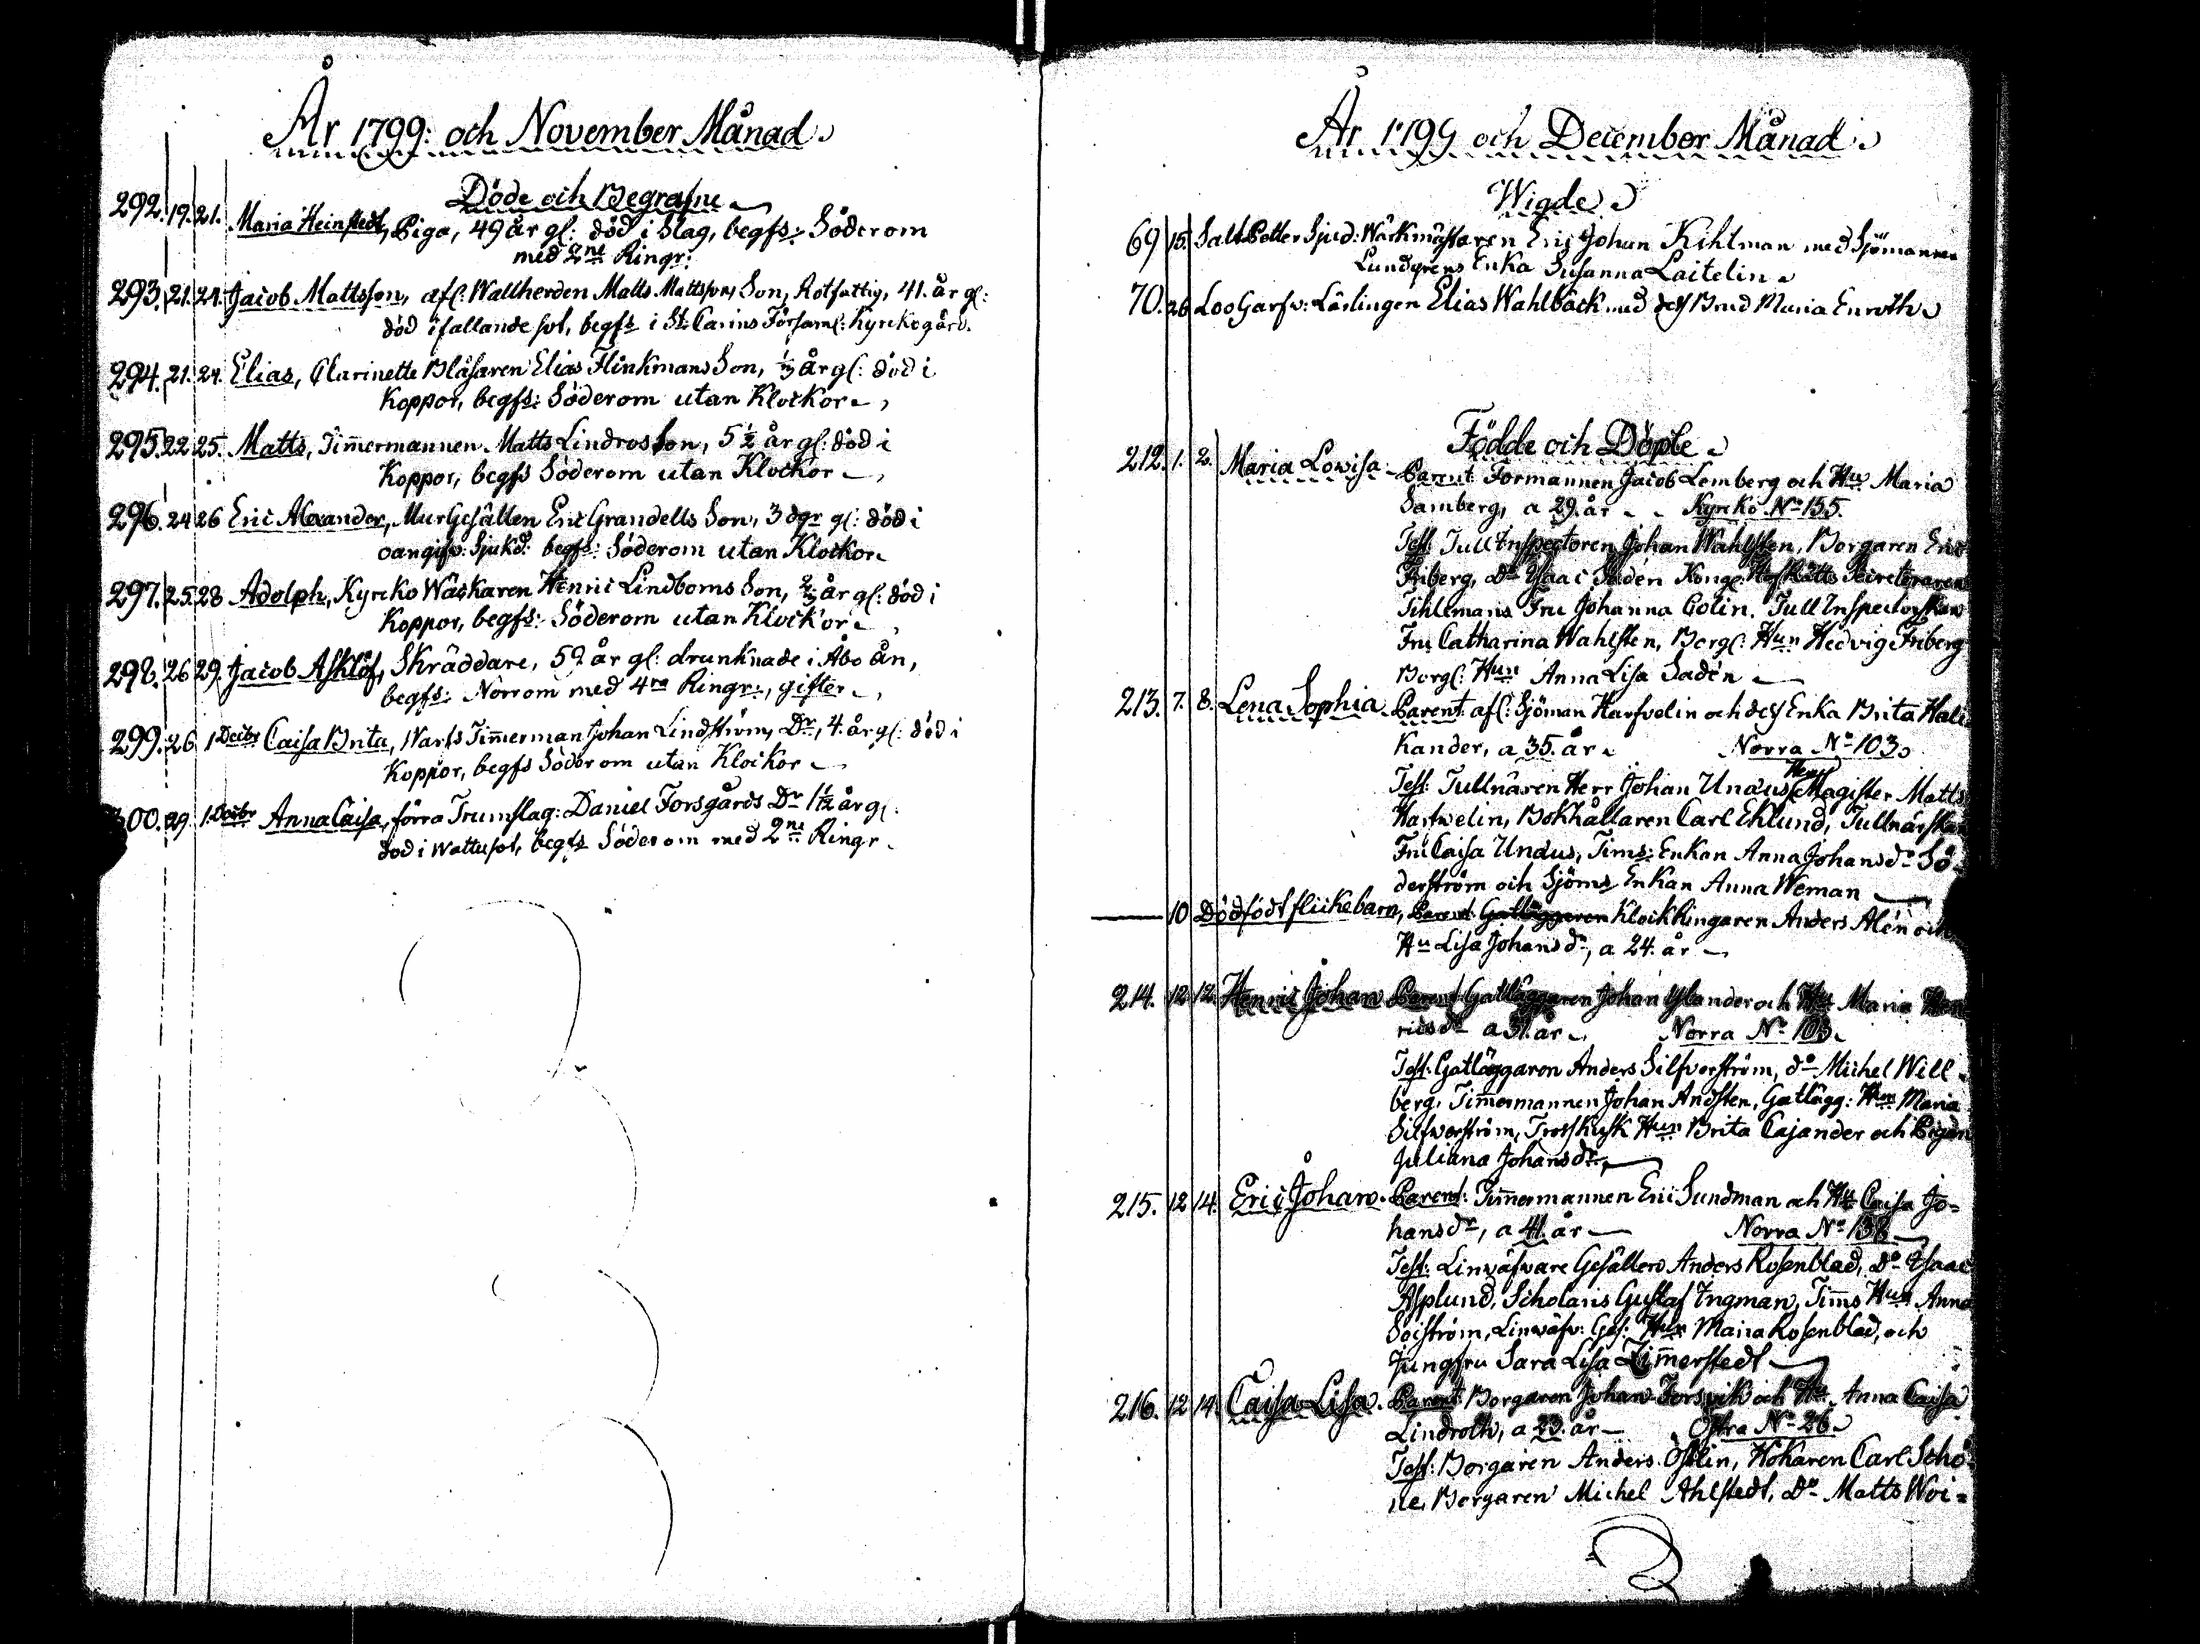 År 1799: och November Månad
Döde och Begrafne
292. 19. 21. Maria Heinstedt, Piga, 49 år gl: död i Slag, begfs: Söderom
med 2ne Ringr:
293. 21. 24. Jacob Mattsson, afl: Wallherden Matts Mattssons Son, Rotfattig, 41. år gl:
död i fallande sot, begfs i St: Carins Församl: Kyrckogård.
294. 21. 24. Elias, Clarinette Blåsaren Elias Flinkmans Son, år gl: död i
Koppor, begfs: Söderom utan Klockor
295. 22 25. Matts, Timmermannen Matts Lindros Son, 5 1/2 år gl: död i
Koppor, begfs Söderom utan Klockor
296. 24 26 Eric Alexander, MurGesällen Eric Grandells Son, 3 dgr gl: död i
oangifv: Sjukd: begfs: Söderom utan Klockor
297. 25 28 Adolph, Kyrcko Wäckaren Henric Lindboms Son, år gl: död i
Koppor, begfs: Söderom utan Klockor
298. 26 29. Jacob Asklöf, Skräddare, 52 år gl: drunknade i Åbo ån,
begfs: Norrom med 4ra Ringr:, gifter
299. 26 1 Decbr Caisa Brita, Warfs Timmerman Johan Lindströms Dr, 4. år gl: död i
Koppor, begfs Söderom utan Klockor
300. 29. 1. Decbr Anna Caisa, förra Trumslag: Daniel Forsgårds Dr 1 1/2 år gl:
död i wattusot, begfs Söderom med 2ne Ringr
År 1799 och December Månad
Wigde
69 15. SaltPetter Sjud: Wärkmästaren Eric Johan Kihlman med Sjömannen
Lundgrens Enka Susanna Laitelin
70. 26 LooGarfv: Lärlingen Elias Wahlbäck med dess Brud Maria Enroth
Födde och Döpte
212. 1. 2. Maria Lovisa Parent: Formannen Jacob Lemberg och Hu Maria
Samberg, a 29. år Kyrko No 155.
Test: Tull Inspectoren Johan Wahlsten, Borgaren Eric
Friberg, Do Isaac Sadén Kongl: HofRätts Secreteraren
Tihlemans Fru Johanna Colin, Tull Inspectorskan
Fru Catharina Wahlsten, Borgl: Hun Hedvig Friberg
Borgl: Hun Anna Lisa Sadén
213. 7. 8. Lena Sophia Parent: afl: Sjöman Harfvelin och dess Enka Brita Hali
Kander, a 35. år Norra No 103
Test: Tullnären Herr Johan Unaus, Herr Magister Matts
Hartwelin, Bokhållaren Carl Ehlund, Tullnärskan
Fru Caisa Unaus, Tims: Enkan Anna Johansdr Sö-
derström och Sjöms Enkan Anna Weman
10 Dödfödt flickebarn, Parent: Gatläggaren KlockRingaren Anders Alén och
Hu Lisa Johansdr, a 24. år
214. 12 12. Henric Johan Parent Gatläggaren Johan Ylander och Hu Maria Hen
ricsdr a 31. år Norra No 103
Test: Gatläggaren Anders Silfverström, do Michel Will-
berg, Timmermannen Johan Andsten, Gatlägg: Hun Maria
Silfwerström, Trosskusk Hun Brita Cajander och Pigan
Juliana Johansdr
215. 12 14. Eric Johan. Parent: Timmermannen Eric Sundman och Hu Caisa Jo-
hansdr, a 41. år Norra No 138
Test: Linwäfvare Gesällen Anders Rosenblad, Do Isaac
Asplund, Scholaris Gustaf Ingman, Tims Hun Anna
Soiström, Linwäfv: Ges: Hun Maria Rosenblad, och
Jungfru Sara Lisa Timmerstedt
216. 12 14. Caisa Lisa. Parent: Borgaren Johan Forsvik och Hu Anna Caisa
Lindroth, a 23. år Östra No 26.
Test: Borgaren Anders Östlin, Hökaren Carl Schö-
ne, Borgaren Michel Ahlstedt, Do Matts Woi-